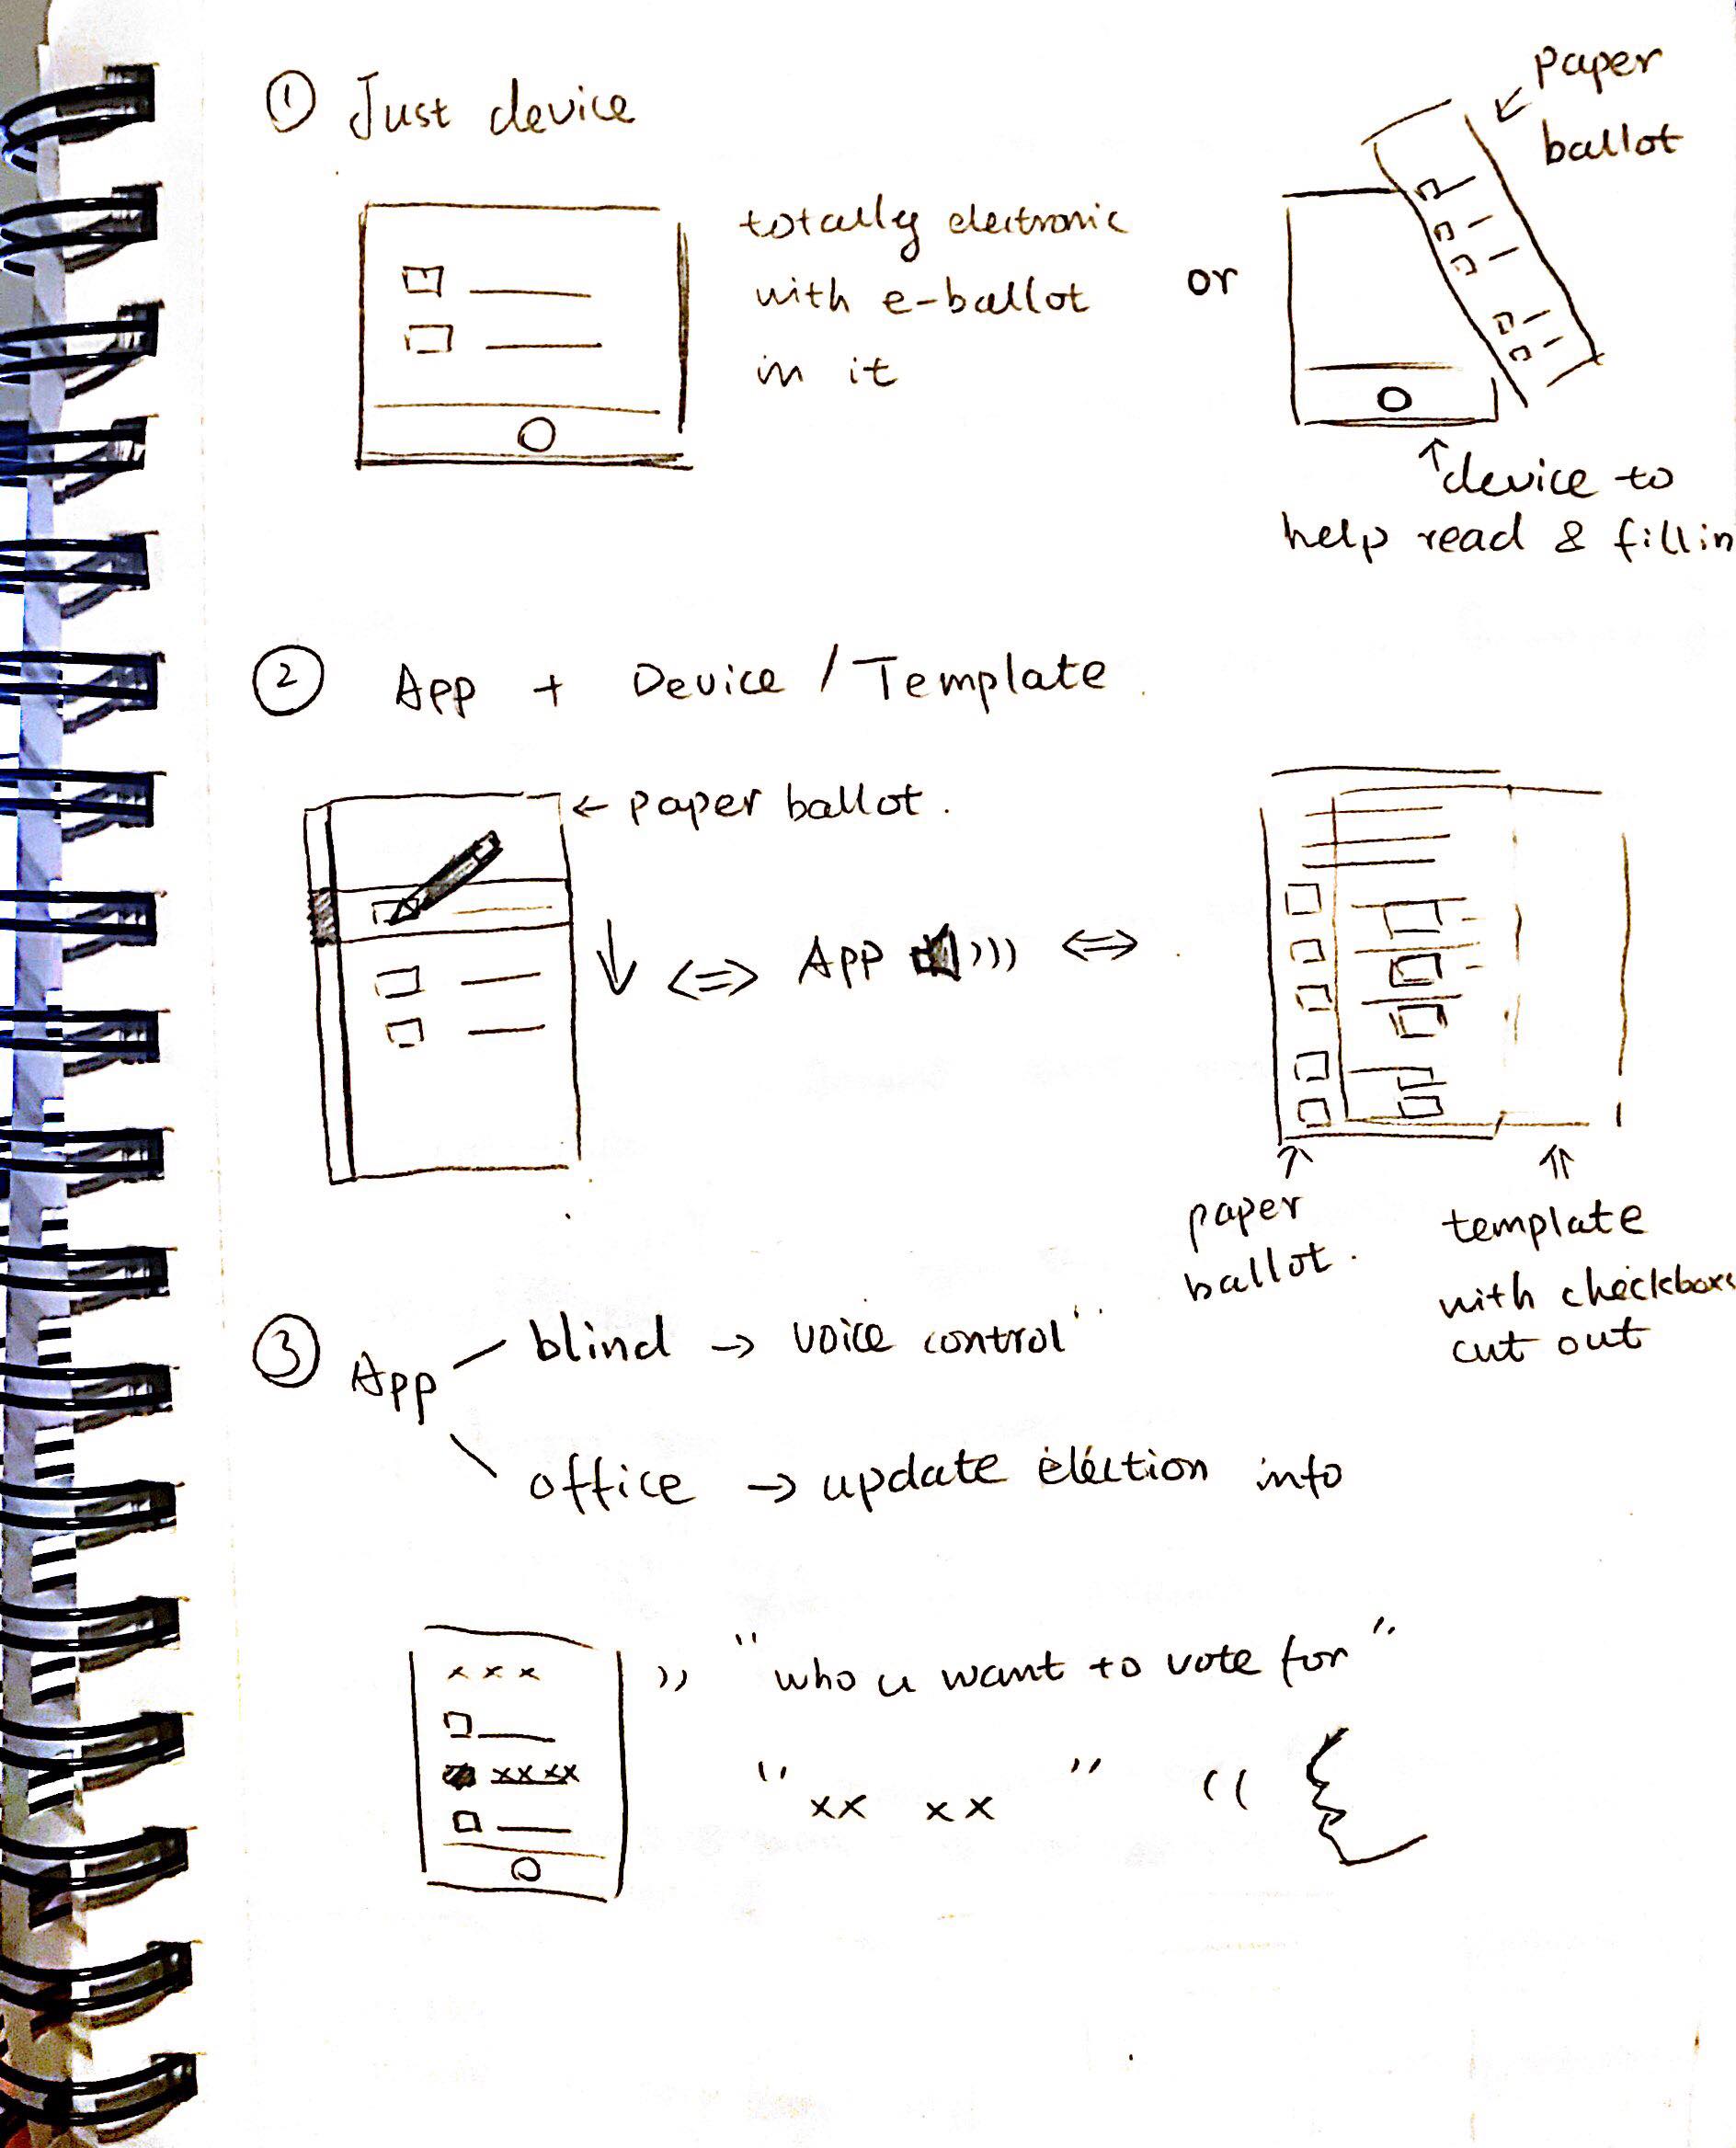 ① Just device
totally electronic
with e-ballot
in it
or
paper
ballot
device to
help read & fill in
② App + Device / Template
paper ballot.
App
paper
ballot.
template
with checkboxs
cut out
③ App
blind → voice control
office → update election info
x x x
xx xx
"who u want to vote for"
"xx xx"